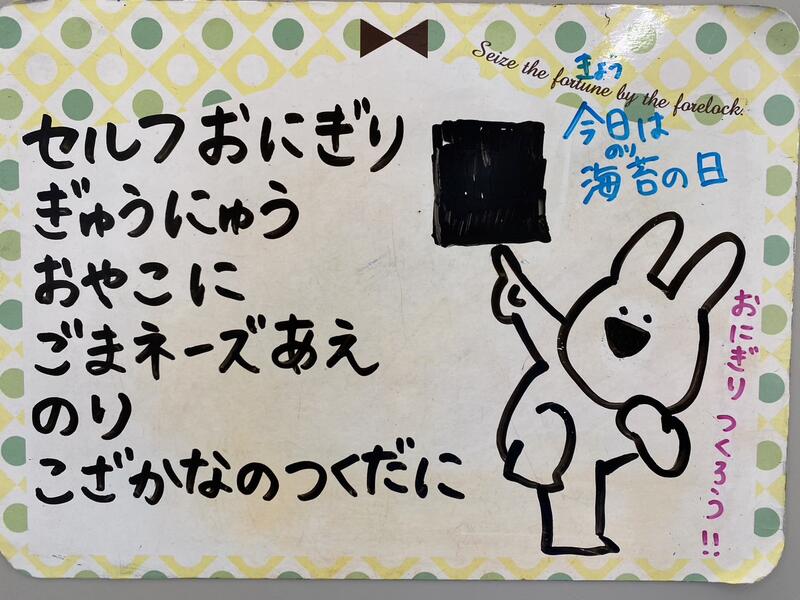 Seize the fortune by the forelock.
セルフおにぎり
ぎゅうにゅう
おやこに
ごまネーズあえ
のり
こざかなのつくだに
きょう
今日は
のり
海苔の日
おにぎり つくろう!!